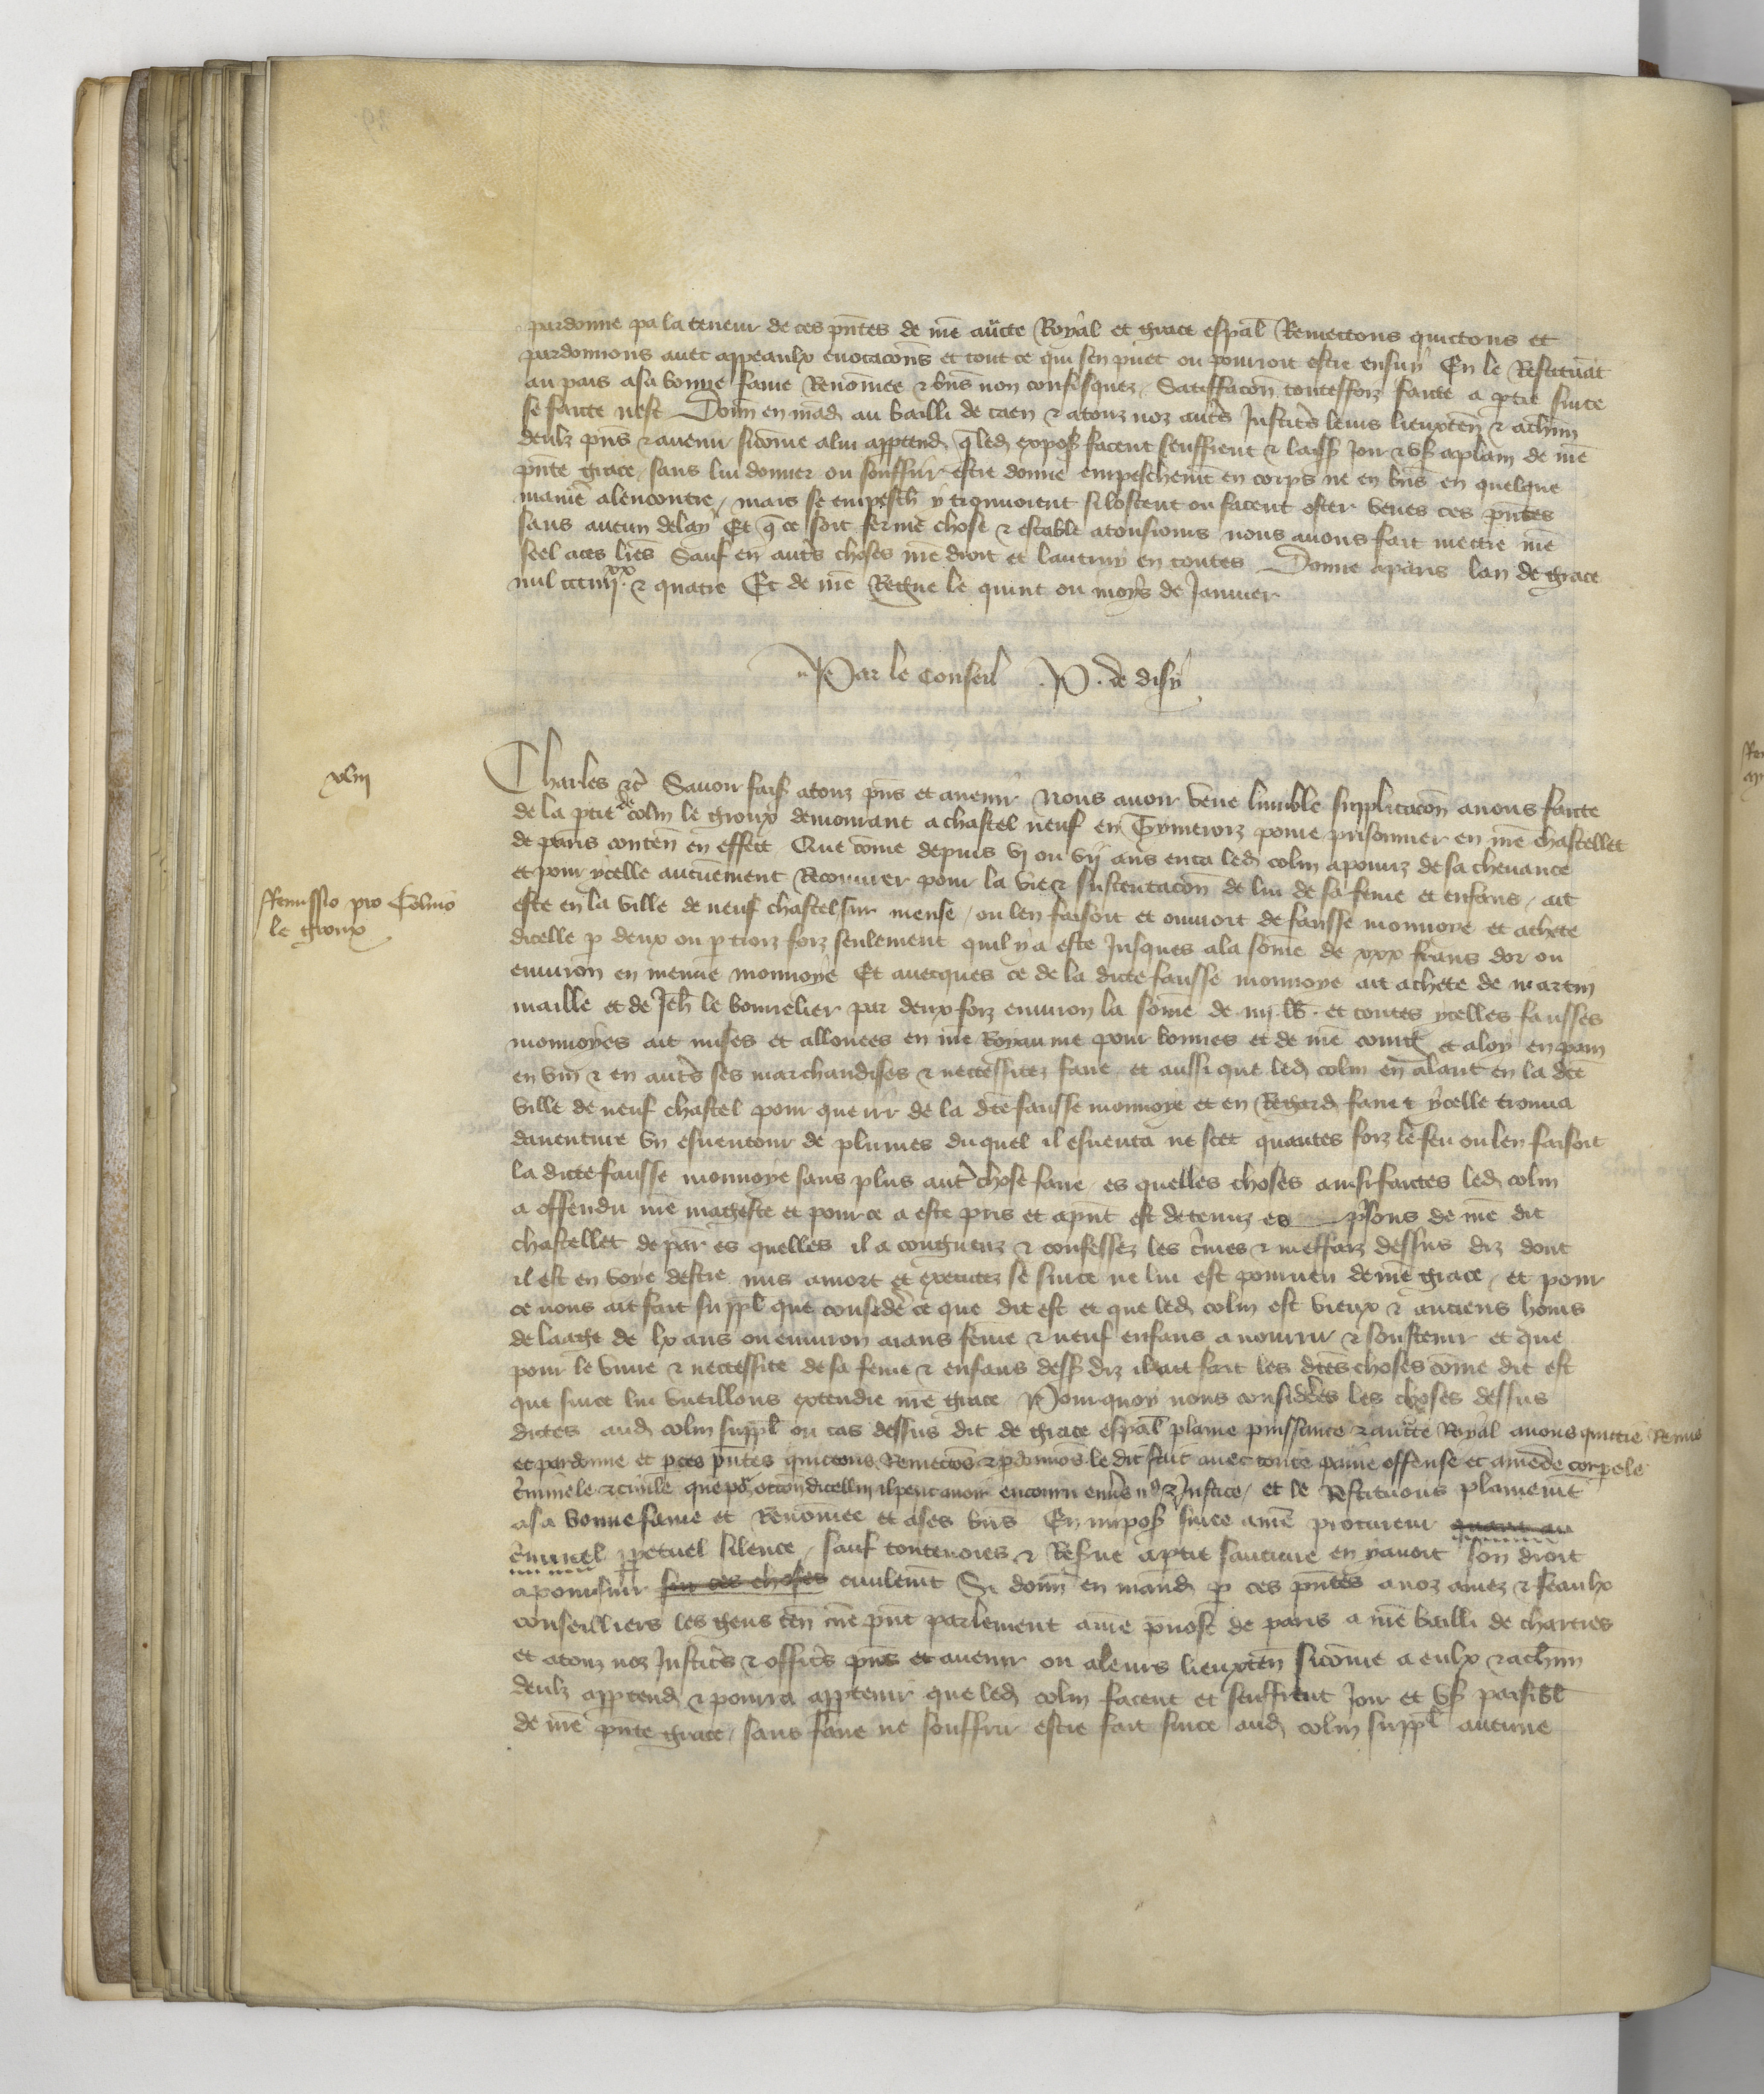 pardonne pa la teneur de ces pntes de nre aucte Royal et grace espal Remectons quictons et
pardonnons avec appeaulx evocacons et tout ce qui sen puet ou pourroit estre ensuy En le Restituat
au pais a sa bonne fame Renommee & bns non confisquez Satiffacon touteffoiz faicte a ptie
se faicte nest Donn en mand au bailli de caen & a touz noz autrs Justicrs leurs lieuxten & achun
deulz pns & avenir sicome a lui apptend q led expos facent seuffrent & laiss Joir & us a plain de nre
pnte grace sans lui donner ou souffrir estre donne empeschemt en corps ne en bns en quelque
manie alencontre mais se empesch y trouvoient si lostent ou facent oster veues ces pntes
sans aucun delay Et q ce soit ferme chose & estable a tousjours nous avons fait mectre nre
seel a ces lres Sauf en autrs choses nre droit et lautruy en toutes Donne a paris lan de grace
mil ccc iiij xx & quatre Et de nre Regne le quint ou moys de Janvier
Par le Conseil P. de disy
xliij
Charles &c Savoir fais a touz pns et avenir Nous avoir veue lumble supplicacon a nous faicte
de la ptie de colin le groux demourant a chastel neuf en Tymeroiz povre prisonnier en nre chastellet
de paris conten en effect Que come depuis vj ou vij ans enca led colin apovriz de sa chevance
et pour ycelle aucunement Recouvrer pour la vie & sustentacon de lui de sa feme et enfans ait
Remissio pro Colino
le groux
este en la ville de neuf chastel sur mense ou len faisoit et ouvroit de fausse monnoye et achete
dicelle p deux ou p troiz foiz seulement quil y a este Jusques a la some de xxx frans dor ou
environ en menue monnoye Et avecques ce de la dicte fausse monnoye ait achete de martin
maille et de Jeh le bourrelier par deux foiz environ la some de iiij lb et toutes ycelles fausses
monnoyes ait mises et allouees en nre Royaume pour bonnes et de nre coing et aloy en pain
en vin & en autrs ses marchandises & neccessitez faire et aussi que led colin en alant en la dte
ville de neuf chastel pour querir de la dte fausse monnoye et en Regard faire ycelle trouva
daventure un esventour de plumes duquel il esventa ne scet quantes foiz le feu ou len faisoit
la dicte fausse monnoye sans plus autr chose faire es quelles choses ainsi faictes led colin
a offendu nre mageste et pour ce a este pris et apnt est detenuz es psons de nre dit
chastellet de par es quelles il a congneuz & confessez les crimes & meffaiz dessus diz dont
il est en voye destre mis a mort et executez se sur ce ne lui est pourveu de nre grace et pour
ce nous ait fait suppl que considere ce que dit est et que led colin est vieux & anciens homs
de laage de lx ans ou environ aians feme & neuf enfans a nourrir & soustenir et que
pour le vivre & neccessite de sa feme & enfans dess diz il ait fait les dtes choses come dit est
que sur ce lui vueillons extendre nre grace Pourquoy nous considers les choses dessus
dictes aud colin suppl ou cas dessus dit de grace espal plaine puissance & aucte Royal avons quictie Remis
et pardonne et p ces pntes quictons Remectos & pdonnos le dit fait avec toute paine offense et amende corpele
criminele & civile que por occon dicellui il peut avoir encouru envrs nos & Justice et le Restituons plainemt
a sa bonne fame et Renommee et a ses bns En impos sur ce a nre procureur quant au
criminel ppetuel silence sauf toutevoies & Resve a ptie saucune en y avoit son droit
a poursuir sur ces choses civilemt Si donn en mand p ces pntes a noz amez & feaulx
conseilliers les gens ten nre pnt parlement a nre pvost de paris a nre bailli de chartres
et a touz noz Justicrs & officrs pns et avenir ou a leurs lieuxten sicome a eulx & achun
deulz apptend & pourra appartenir que led colin facent et seuffrent Joir et us paisibl
de nre pnte grace sans faire ne souffrir estre fait sur ce aud colin suppl aucune